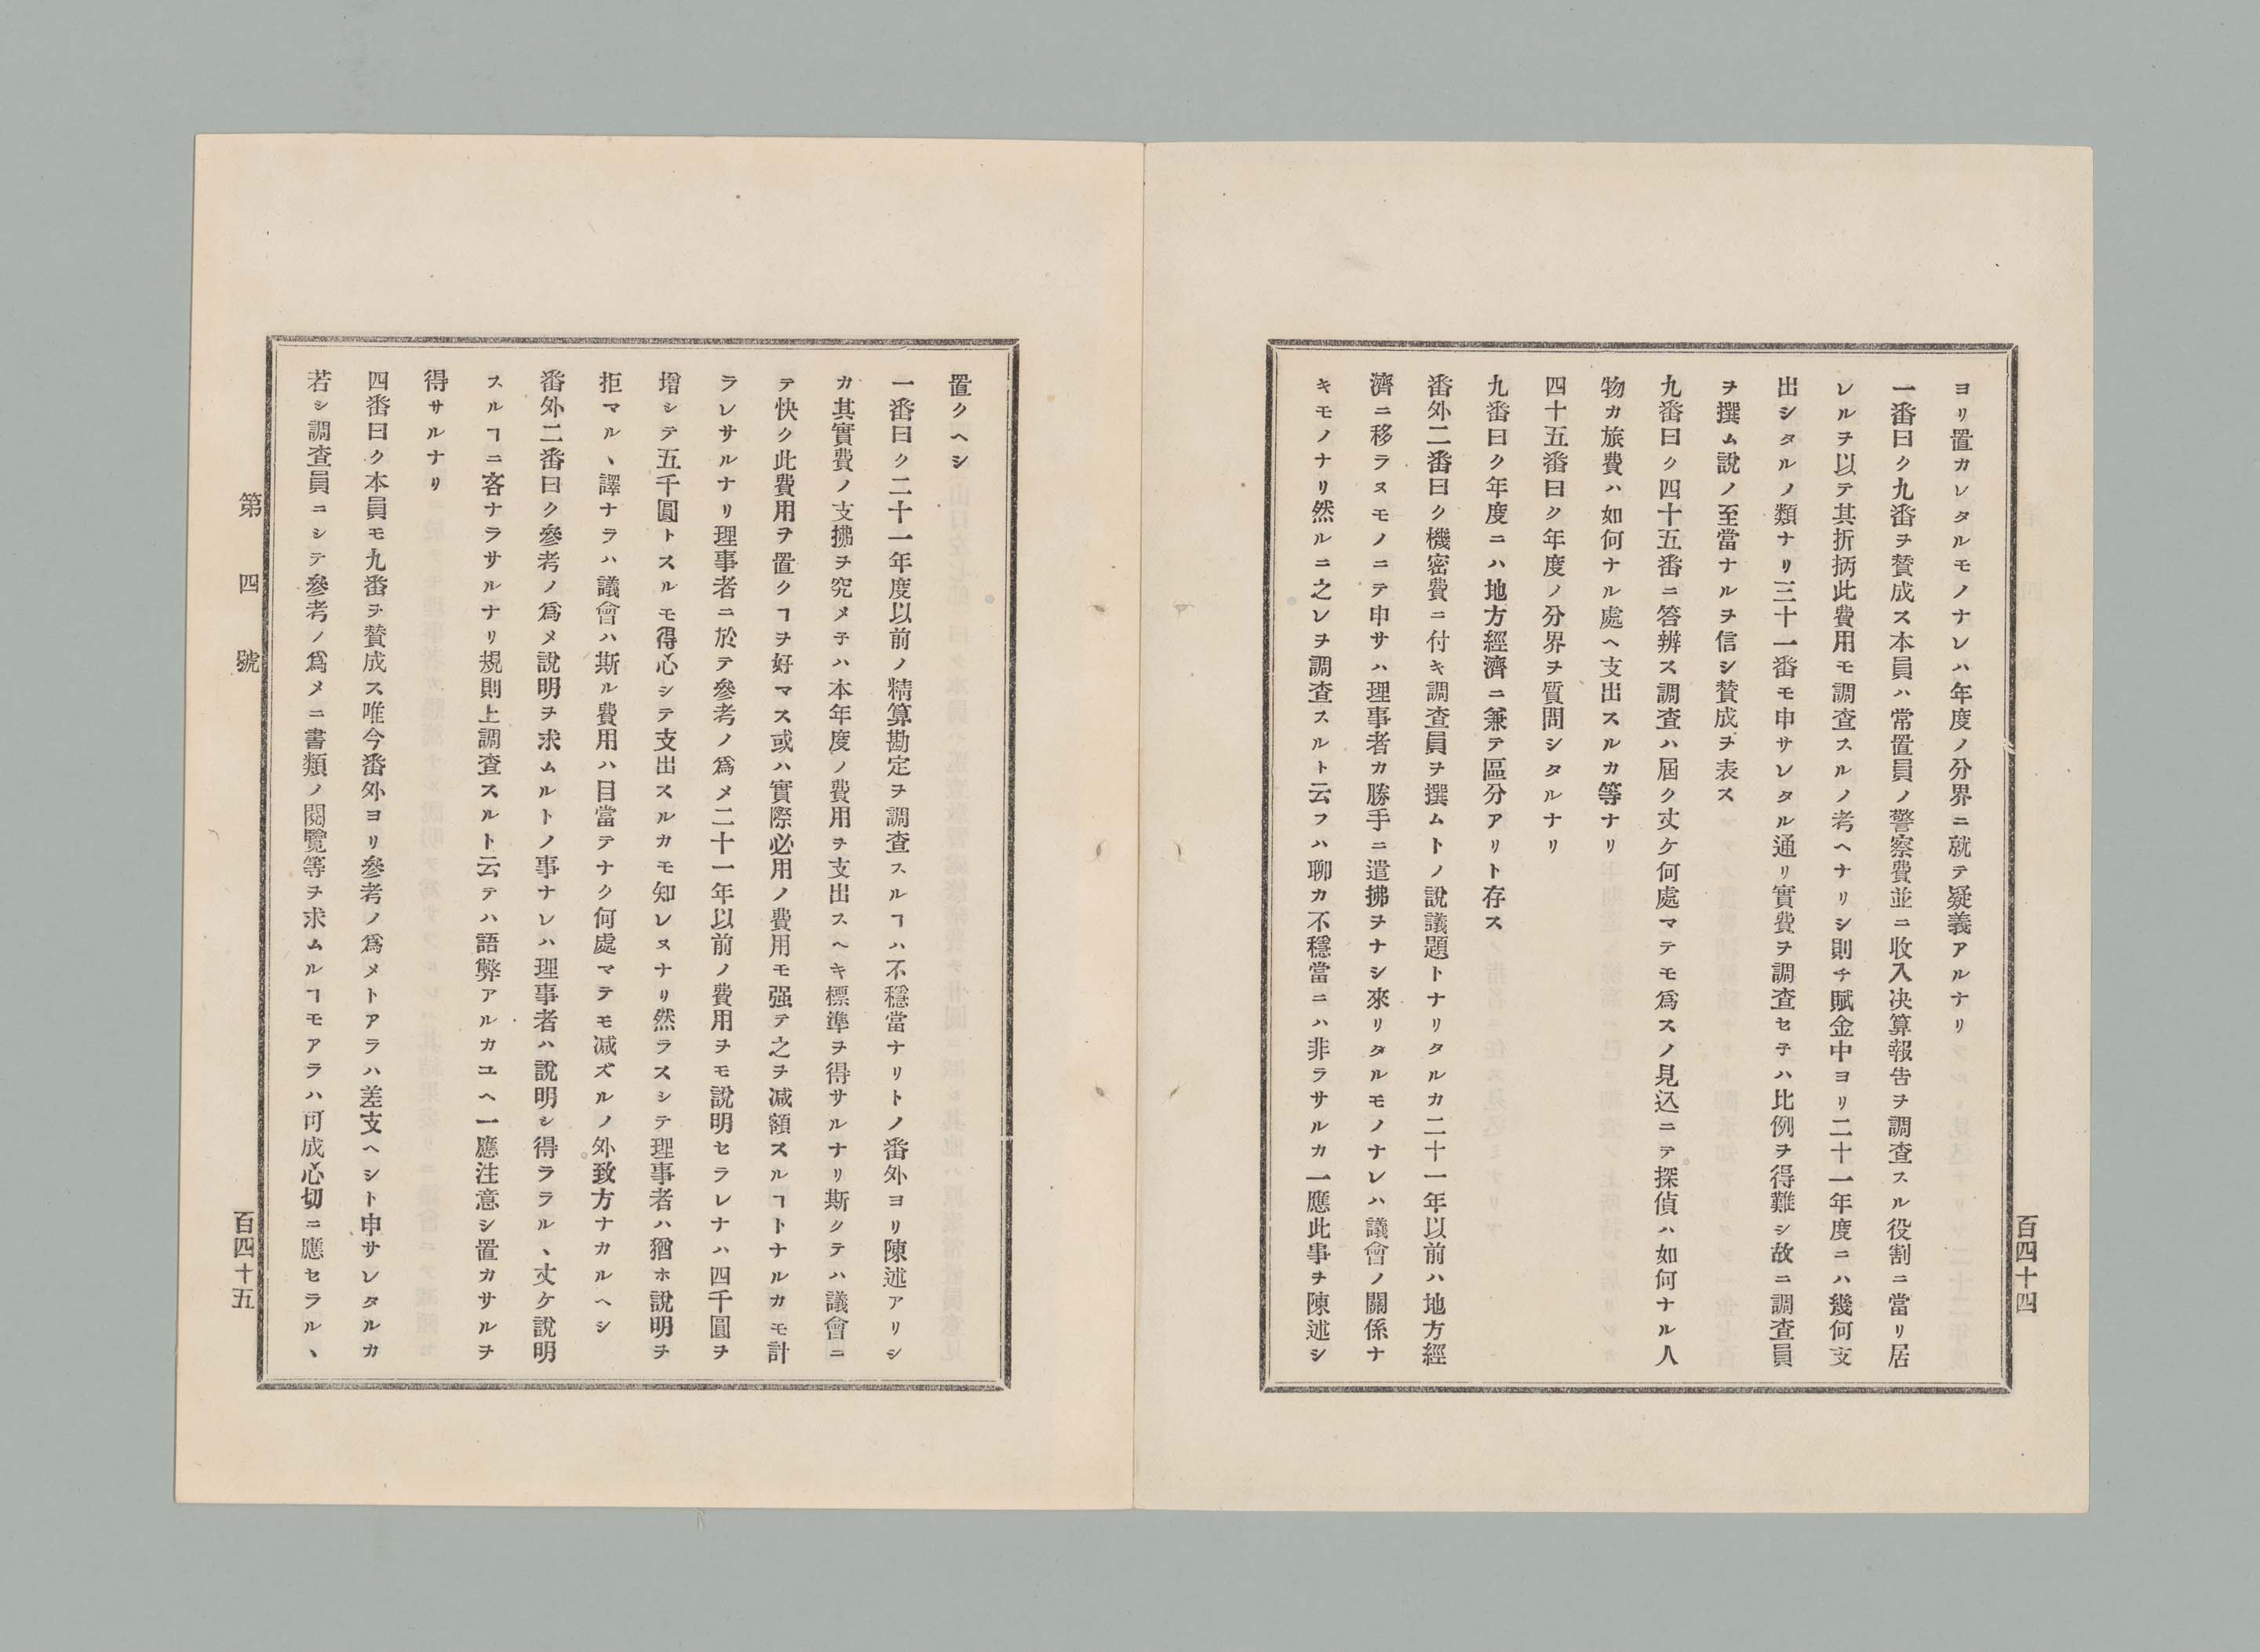 ヨリ置カレタルモノナレハ年度ノ分界ニ就テ疑義アルナリ
一番曰ク九番ヲ賛成ス本員ハ常置員ノ警察費並ニ收入决算報告ヲ調査スル役割ニ當リ居
レルヲ以テ其折抦此費用モ調査スルノ考ヘナリシ則チ賦金中ヨリ二十一年度ニハ幾何支
出シタルノ類ナリ三十一番モ申サレタル通リ實費ヲ調査セ子ハ比例ヲ得難シ故ニ調査員
ヲ撰ム說ノ至當ナルヲ信シ賛成ヲ表ス
九番曰ク四十五番ニ答辨ス調査ハ屆ク丈ケ何處マテモ爲スノ見込ニテ探偵ハ如何ナル人
物カ旅費ハ如何ナル處ヘ支出スルカ等ナリ
四十五番曰ク年度ノ分界ヲ質問シタルナリ
九番曰ク年度ニハ地方經濟ニ兼テ區分アリト存ス
番外二番曰ク機密費ニ付キ調査員ヲ撰ムトノ說議題トナリタルカ二十一年以前ハ地方經
濟ニ移ラヌモノニテ申サハ理事者カ勝手ニ遣拂ヲナシ來リタルモノナレハ議會ノ關係ナ
キモノナリ然ルニ之レヲ調査スルト云フハ聊カ不穩當ニハ非ラサルカ一應此事ヲ陳述シ
百四十四
置クヘシ
一番曰ク二十一年度以前ノ精算勘定ヲ調査スルヿハ不穩當ナリトノ番外ヨリ陳述アリシ
カ其實費ノ支拂ヲ究メ子ハ本年度ノ費用ヲ支出スヘキ標準ヲ得サルナリ斯クテハ議會ニ
テ快ク此費用ヲ置クヿヲ好マス或ハ實際必用ノ費用モ强テ之ヲ减額スルヿトナルカモ計
ラレサルナリ理事者ニ於テ參考ノ爲メ二十一年以前ノ費用ヲモ說明セラレナハ四千圓ヲ
增シテ五千圓トスルモ得心シテ支出スルカモ知レヌナリ然ラスシテ理事者ハ猶ホ說明ヲ
拒マル、譯ナラハ議會ハ斯ル費用ハ目當テナク何處マテモ减ズルノ外致方ナカルヘシ
番外二番曰ク參考ノ爲メ說明ヲ求ムルトノ事ナレハ理事者ハ說明シ得ララル、丈ケ說明
スルヿニ客ナラサルナリ規則上調査スルト云テハ語弊アルカユヘ一應注意シ置カサルヲ
得サルナリ
四番曰ク本員モ九番ヲ賛成ス唯今番外ヨリ參考ノ爲メトアラハ差支ヘシト申サレタルカ
若シ調査員ニシテ參考ノ爲メニ書類ノ閱覽等ヲ求ムルヿモアラハ可成心切ニ應セラル、
第四號
百四十五